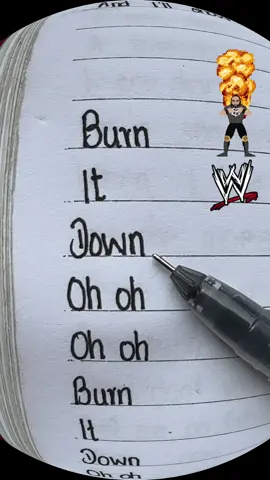 And I'll
Burn
It
Down
Oh oh
Oh oh
Burn
It
Down
Oh oh